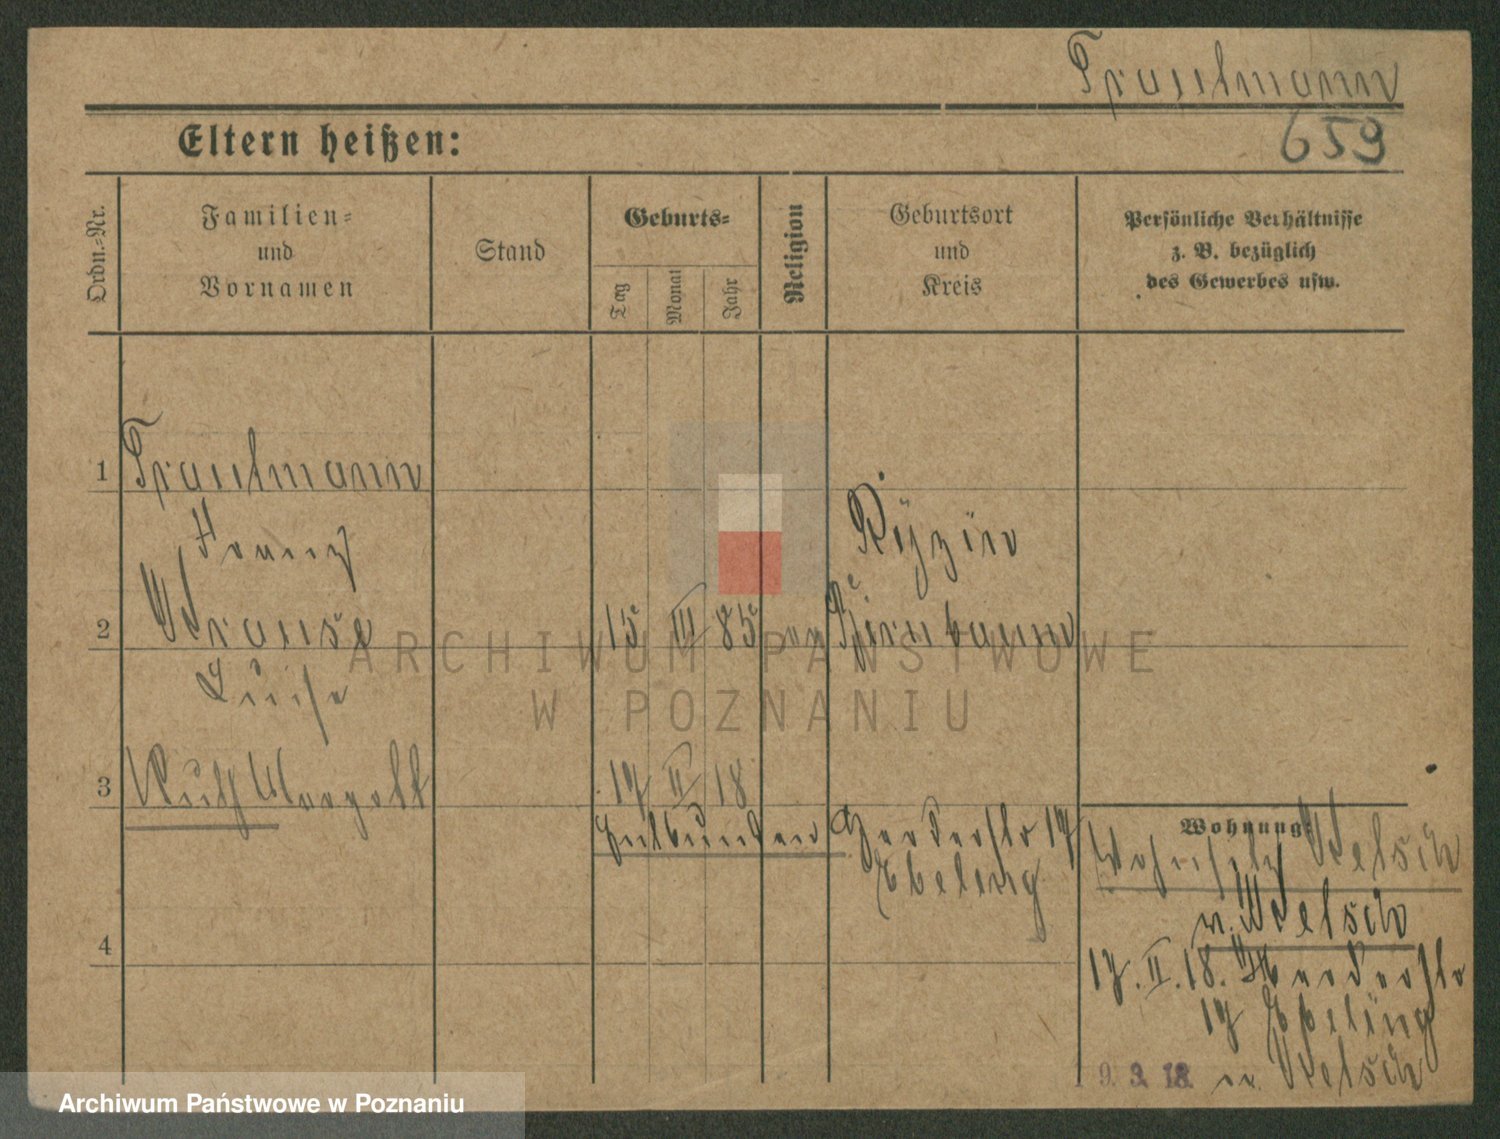 Trautmann
659
Eltern heißen:
Ordn.-Nr.
Familien-
und
Vornamen
Stand
Geburts-
Tag
Monat
Jahr
Religion
Geburtsort
und
Kreis
Persönliche Verhältnisse
z. B. bezüglich
des Gewerbes usw.
1
Trautmann
Franz
2
Krause
Luise
15 III 85 ev
Birnbaum
3
Ruth Margot
17 II 18
Entbunden Herderstr 17
Ebeling
Wohnung:
Wohnsitz Welsch
n. Welsch
17. II. 18. Herderstr
17 Ebeling
9. 3. 18. n. Welsch
4
ARCHIWUM PAŃSTWOWE
W POZNANIU
Archiwum Państwowe w Poznaniu